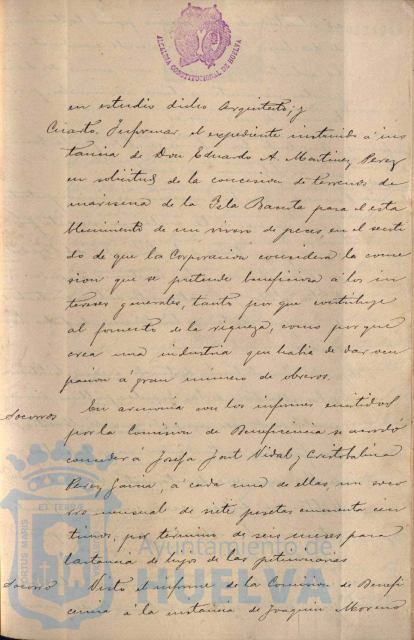 ALCALDIA CONSTITUCIONAL DE HUELVA
en estudio dicho Arquitecto; y
Cuarto. Informar el expediente instruido á ins
tancia de Don Eduardo A. Martinez Perez
en solicitud de la concesion de terrenos de
marisma de la Isla Bacuta para el esta
blecimiento de un vivero de peces, en el senti
do de que la Corporacion considera la conce
sion que se pretende beneficiosa á los in
tereses generales, tanto por que contribuye
al fomento de la riqueza, como por que
crea una industria que habia de dar ocu
pacion á gran número de obreros.
Socorros
En armonia con los informes emitidos
por la Comision de Beneficencia se acordó
conceder á Josefa Vidal y Cristobalina
Perez Garcia, á cada una de ellas, un soco
rro mensual de siete pesetas cincuenta cén
timos, por término de seis meses para
lactancia de hijos de las peticionarias
Socorro
Visto el informe de la Comision de Benefi
cencia á la instancia de Joaquin Moreno
Ayuntamiento de
HUELVA